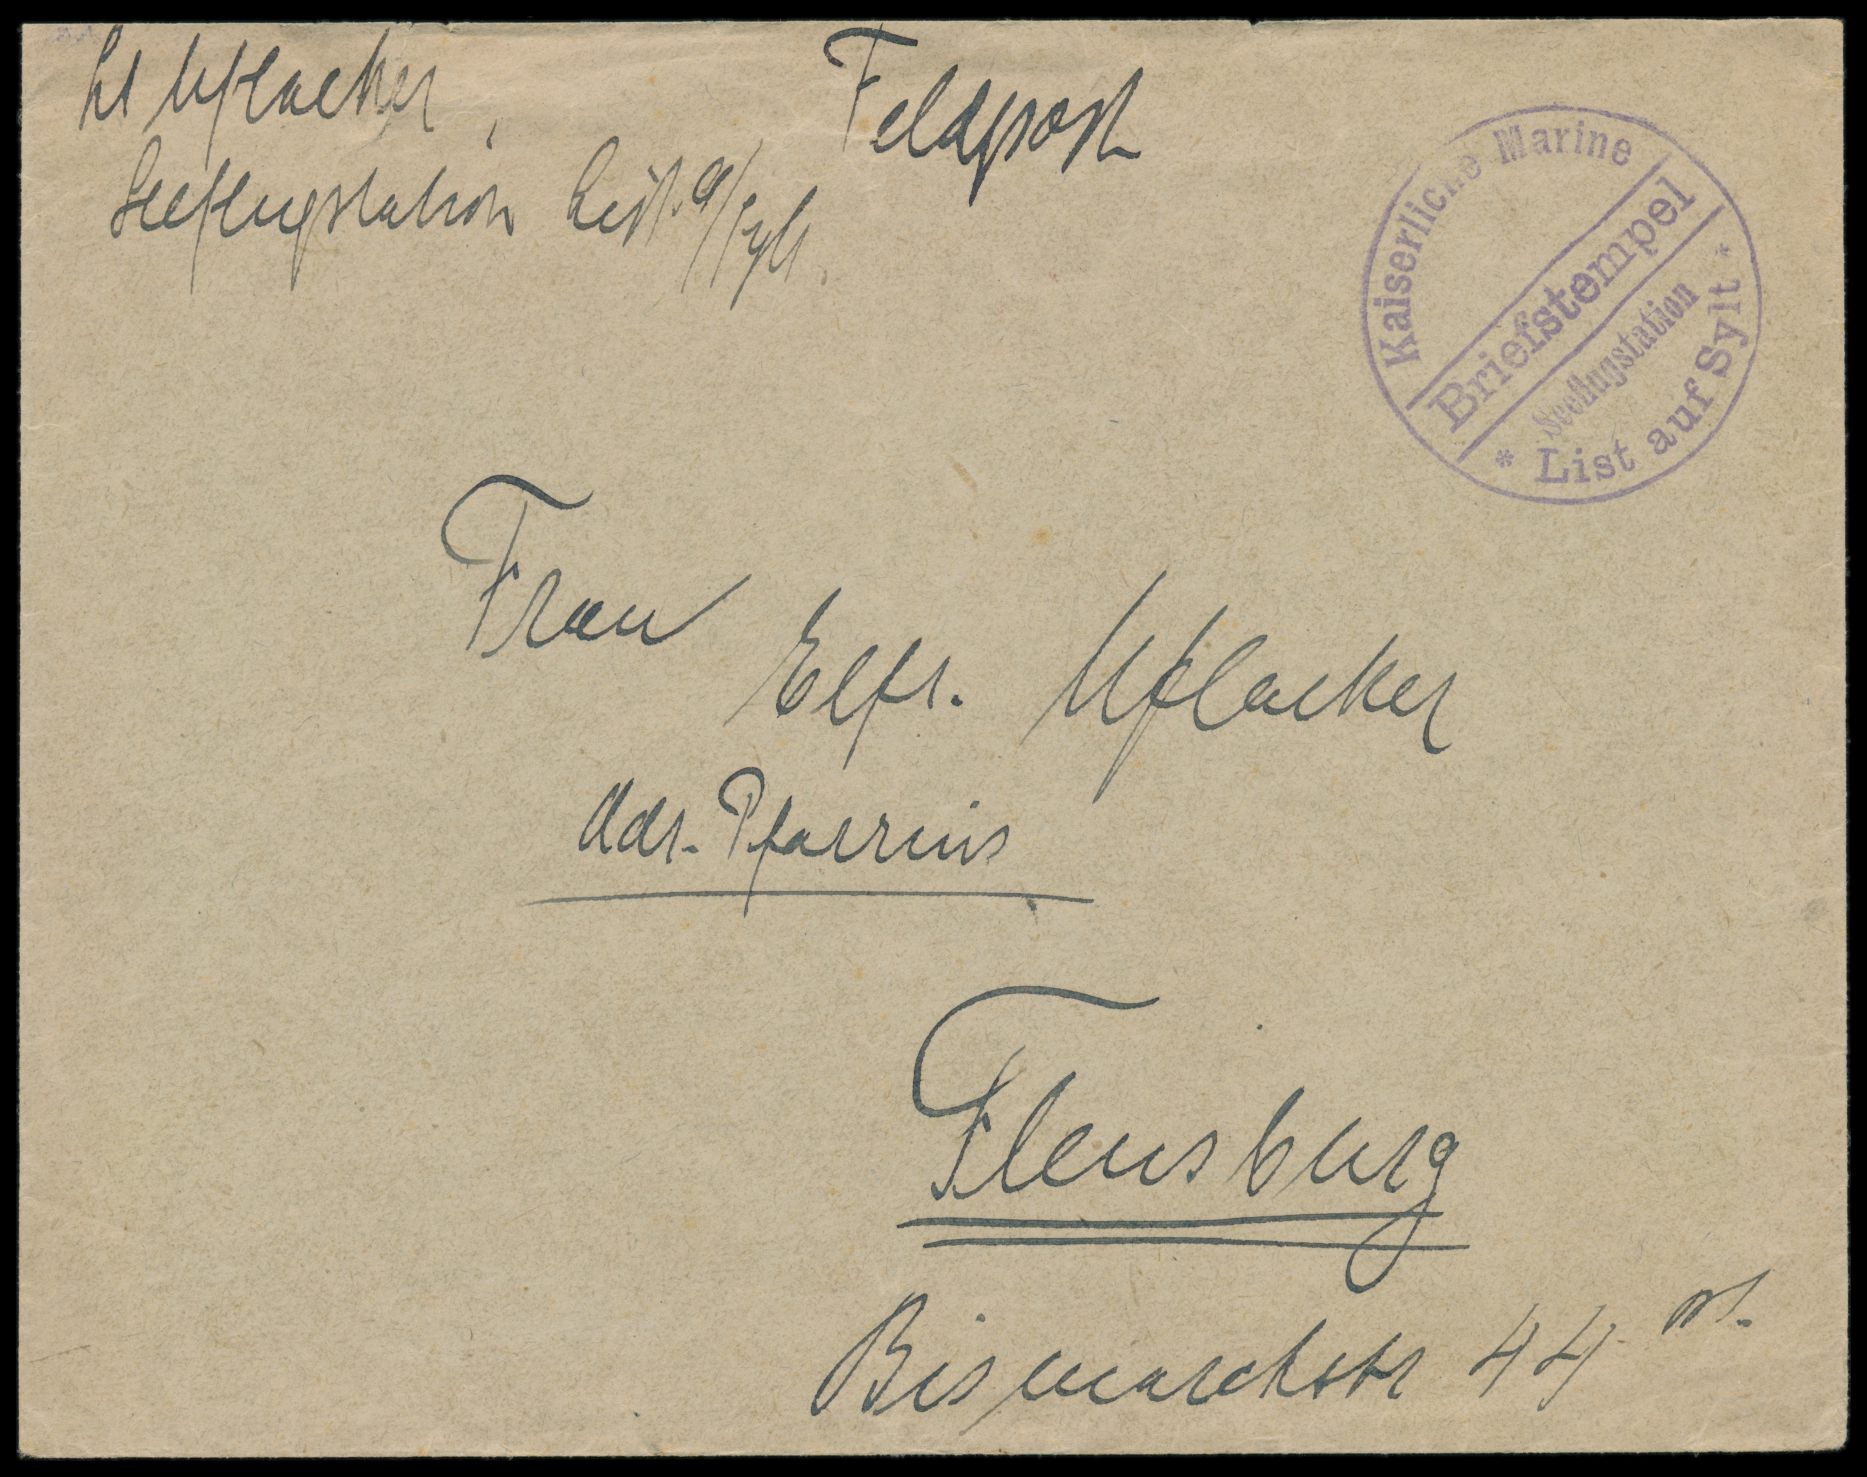 Lt Uflacker,
Seeflugstation List a/Sylt.
Feldpost
Kaiserliche Marine
Briefstempel
Seeflugstation
* List auf Sylt *
Frau
Elfr. Uflacker
Adr. Pfarrius
Flensburg
Bismarckstr 44